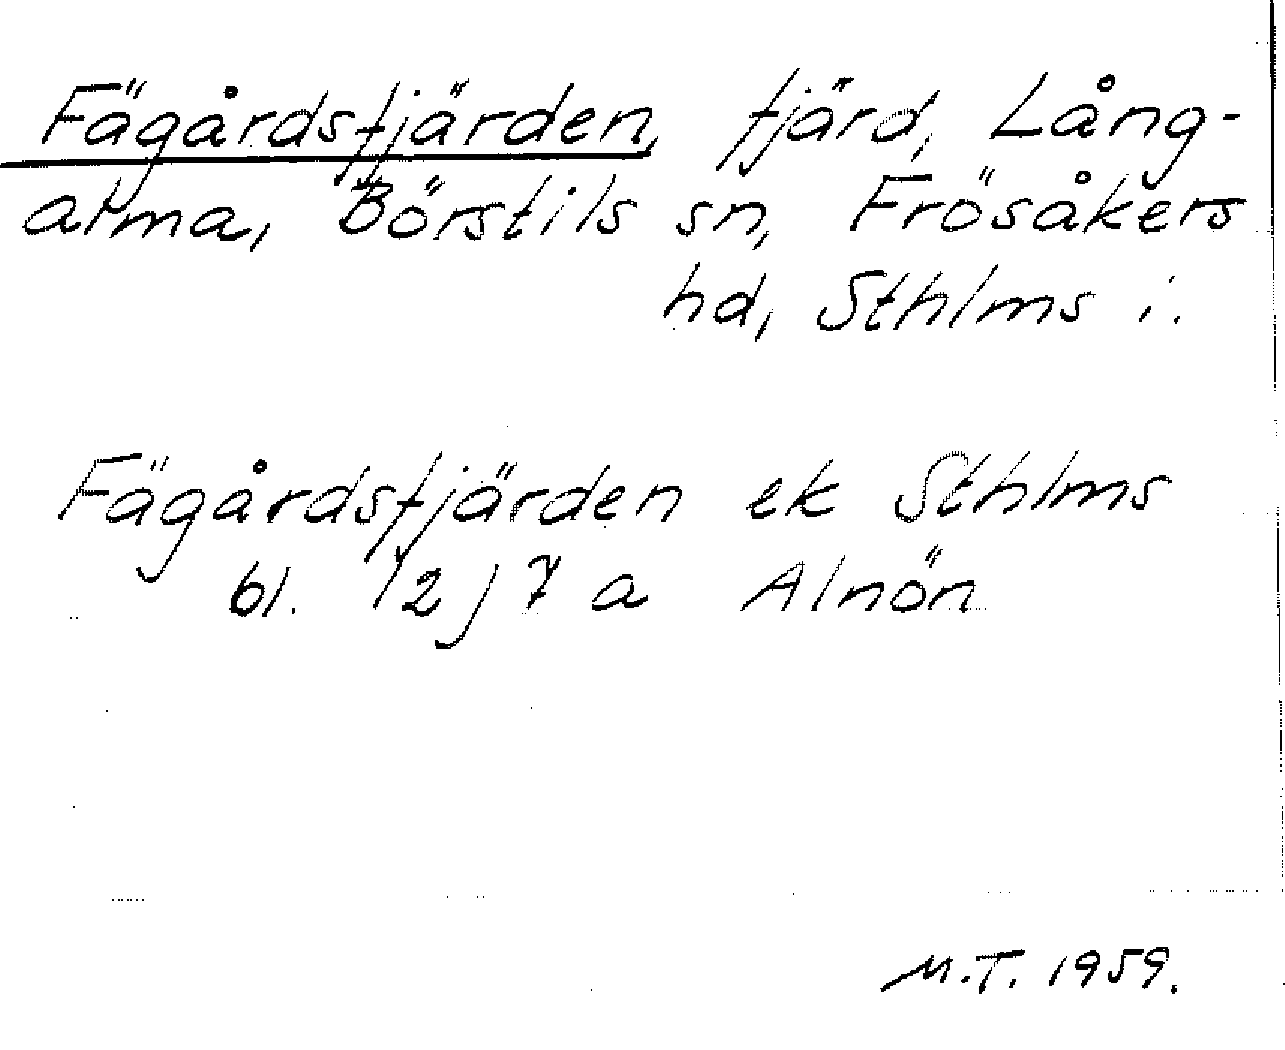 Fägårdsfjärden, fjärd, Lång-
alma, Börstils sn, Frösåkers
hd, Sthlms i.
Fägårdsfjärden ek Sthlms
bl. 12 j 7 a Alnön
M.T. 1959.